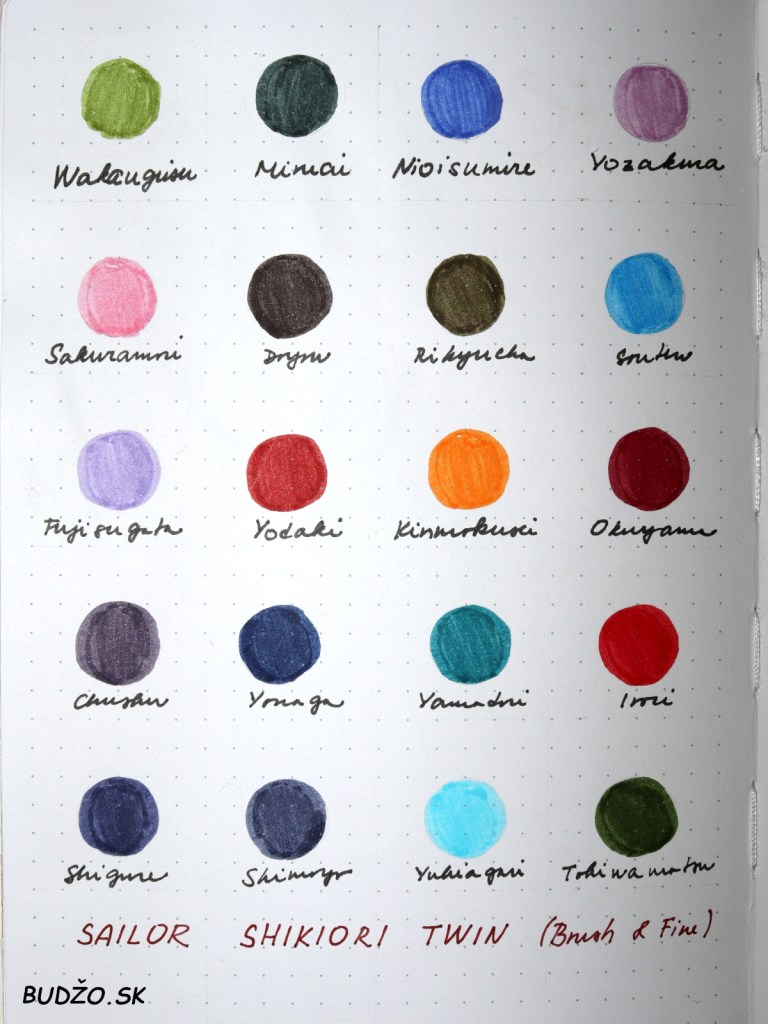 Wakauguisu Miruai Nioisumire Yozakura
Sakuramori Doyou Rikyucha Souten
Fujisugata Yodaki Kinmokusei Okuyama
Chushu Yonaga Yamadori Irori
Shigure Shimoyo Yukiakari Tokiwamatsu
SAILOR SHIKIORI TWIN (Brush & Fine)
BUDŽO.SK